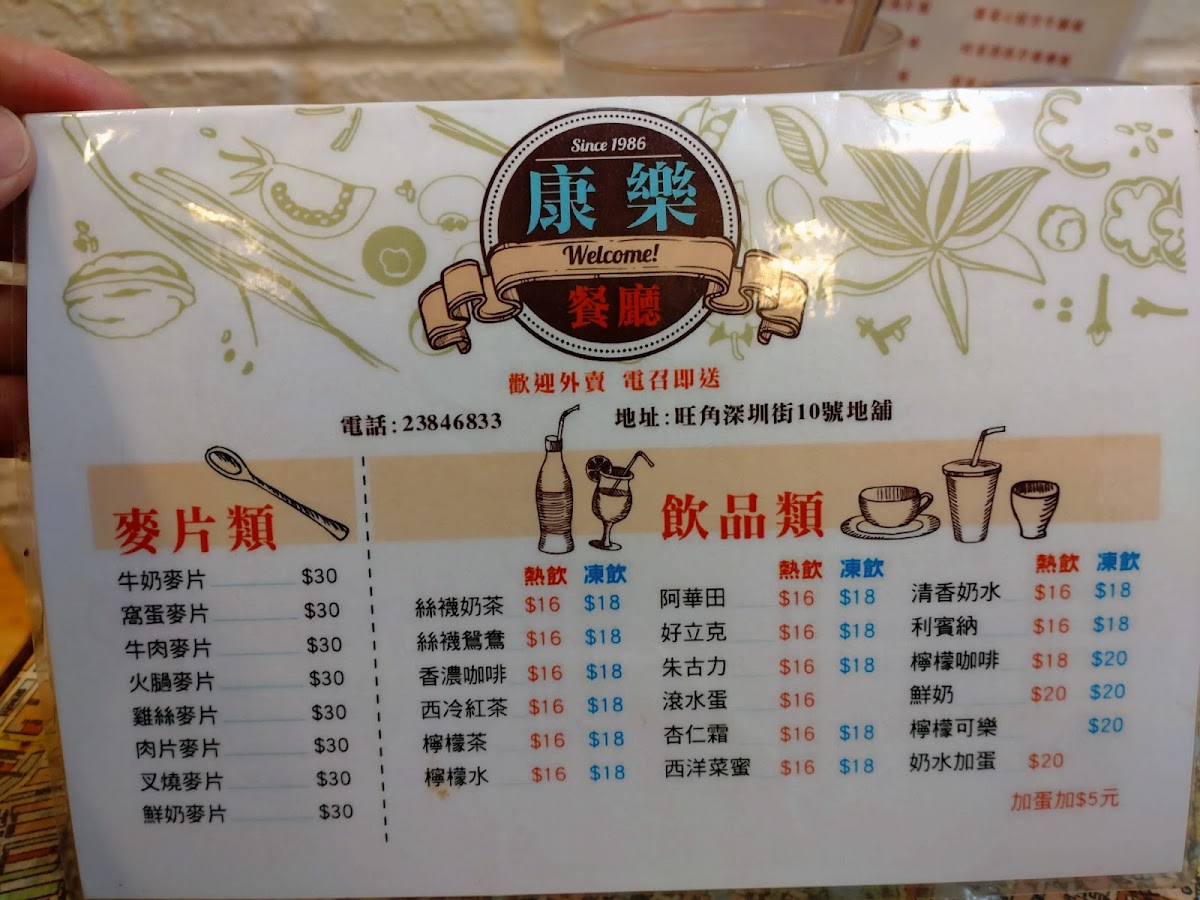 Since 1986
康樂
Welcome!
餐廳
歡迎外賣 電召即送
電話:23846833 地址:旺角深圳街10號地舖
麥片類
牛奶麥片 $30
窩蛋麥片 $30
牛肉麥片 $30
火腿麥片 $30
雞絲麥片 $30
肉片麥片 $30
叉燒麥片 $30
鮮奶麥片 $30
飲品類
熱飲 凍飲
絲襪奶茶 $16 $18
絲襪鴛鴦 $16 $18
香濃咖啡 $16 $18
西冷紅茶 $16 $18
檸檬茶 $16 $18
檸檬水 $16 $18
熱飲 凍飲
阿華田 $16 $18
好立克 $16 $18
朱古力 $16 $18
滾水蛋 $16
杏仁霜 $16 $18
西洋菜蜜 $16 $18
熱飲 凍飲
清香奶水 $16 $18
利賓納 $16 $18
檸檬咖啡 $18 $20
鮮奶 $20 $20
檸檬可樂 $20
奶水加蛋 $20
加蛋加$5元